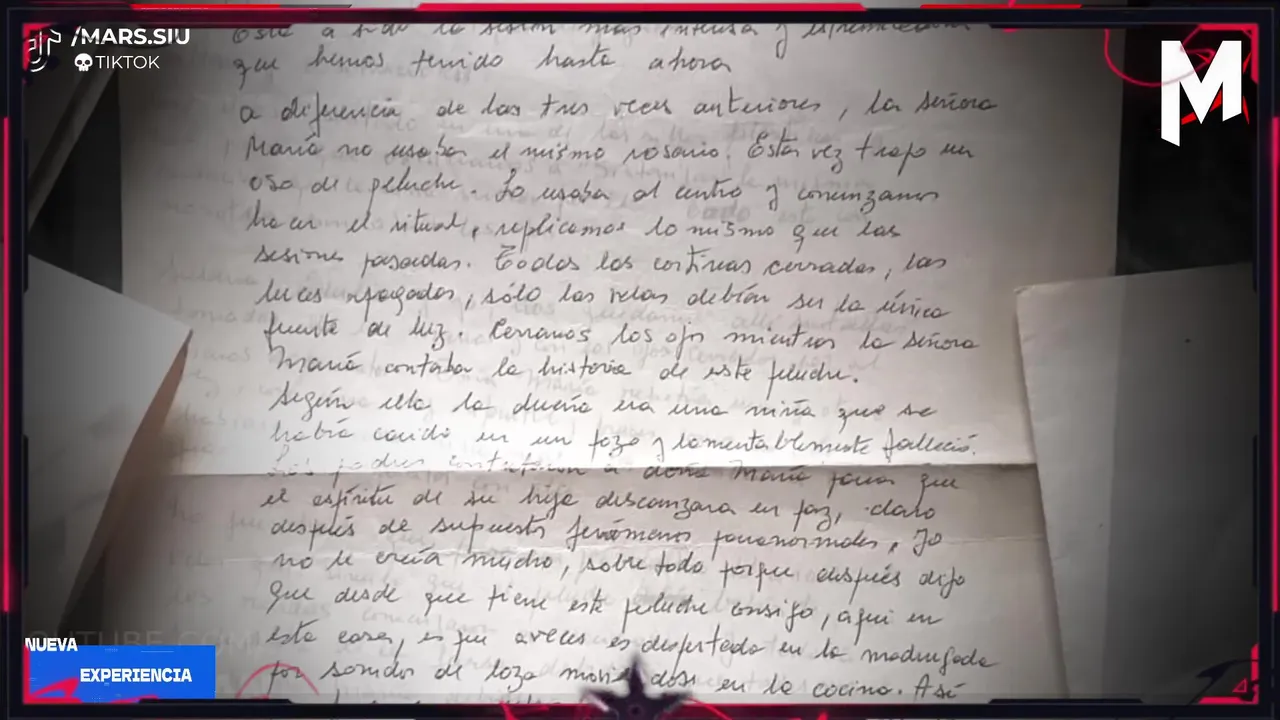 /MARS.SIU
TIKTOK
M
Esta a sido la sesión más intensa y
que hemos tenido hasta ahora
a diferencia de las tres veces anteriores, la señora
María no usaba el mismo rosario. Esta vez trajo un
oso de peluche. Lo usaba al centro y comenzamos
hacer el ritual, replicamos lo mismo que las
sesiones pasadas. Todas las cortinas cerradas, las
luces apagadas, sólo las velas debían ser la única
fuente de luz. Cerramos los ojos mientras la señora
María contaba la historia de este peluche.
Según ella la dueña era una niña que se
había caido en un pozo y lamentablemente falleció.
Los padres contrataron a doña María para que
el espíritu de su hija descanzara en paz, claro
después de supuestos fenómenos paranormales. Yo
no le creía mucho, sobre todo porque después dijo
que desde que tiene este peluche consigo, aquí en
esta casa, es que a veces es despertada en la madrugada
por sonidos de loza moviendose en la cocina. Así
YOUTUBE.COM
NUEVA
EXPERIENCIA